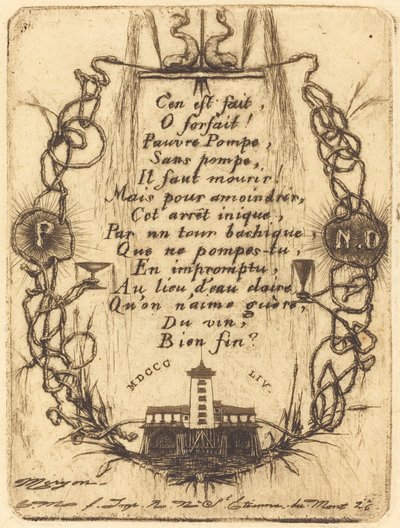 C'en est fait,
O forfait!
Pauvre Pompe,
Sans pompe,
Il faut mourir!
Mais pour amoindrir,
Cet arrêt inique,
Par un tour bachique,
Que ne pompes-tu,
En impromptu,
Au lieu d'eau claire,
Qu'on n'aime guère,
Du vin,
Bien fin?
P.
N.D
MDCCC LIV.
Meryon
Imp. R. N. St Etienne du Mont 26